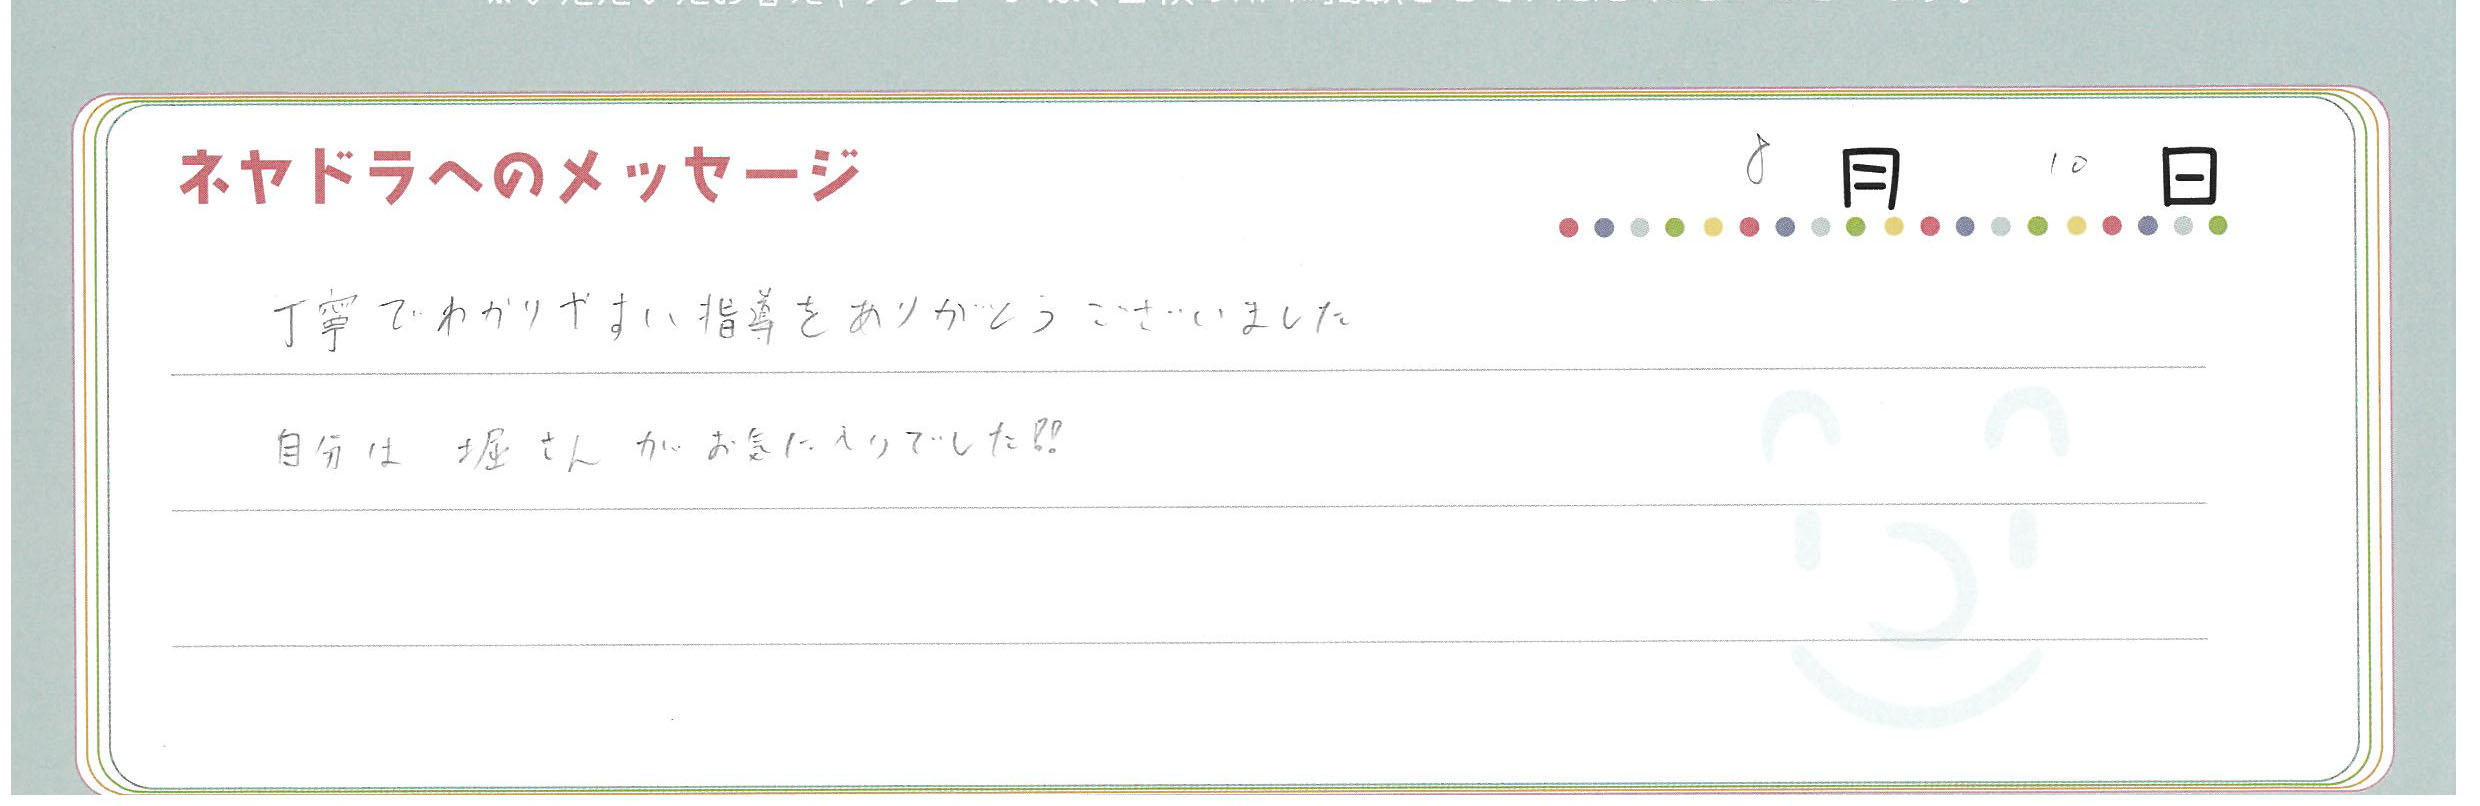 ネヤドラへのメッセージ
8月 10日
丁寧でわかりやすい指導をありがとうございました
自分は 堀さんがお気に入りでした!!